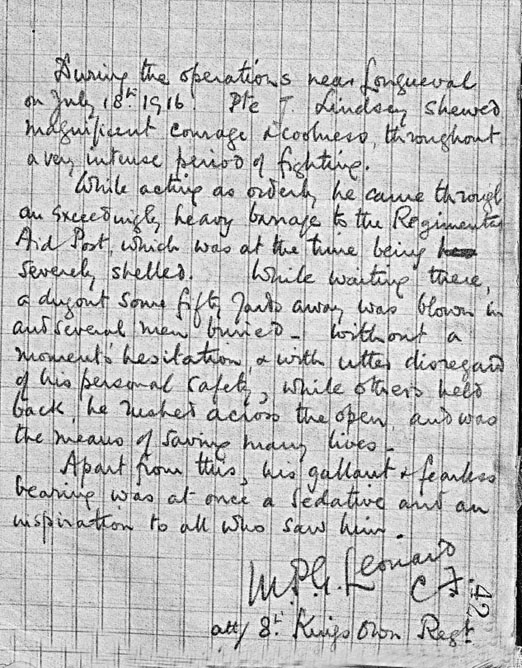 During the operations near Longueval
on July 18th 1916. Pte T. Lindsey shewed
magnificent courage & coolness, throughout
a very intense period of fighting.
While acting as orderly he came through
an exceedingly heavy barrage to the Regimental
Aid Post, which was at the time being
severely shelled. While waiting there,
a dugout some fifty yards away was blown in
and several men buried – Without a
moment's hesitation, & with utter disregard
of his personal safety, while others held
back, he rushed across the open, and was
the means of saving many lives –
Apart from this, his gallant & fearless
bearing was at once a sedative and an
inspiration to all who saw him.
M.P.G. Leonard
C.F.
att/ 8th Kings Own Regt.
42